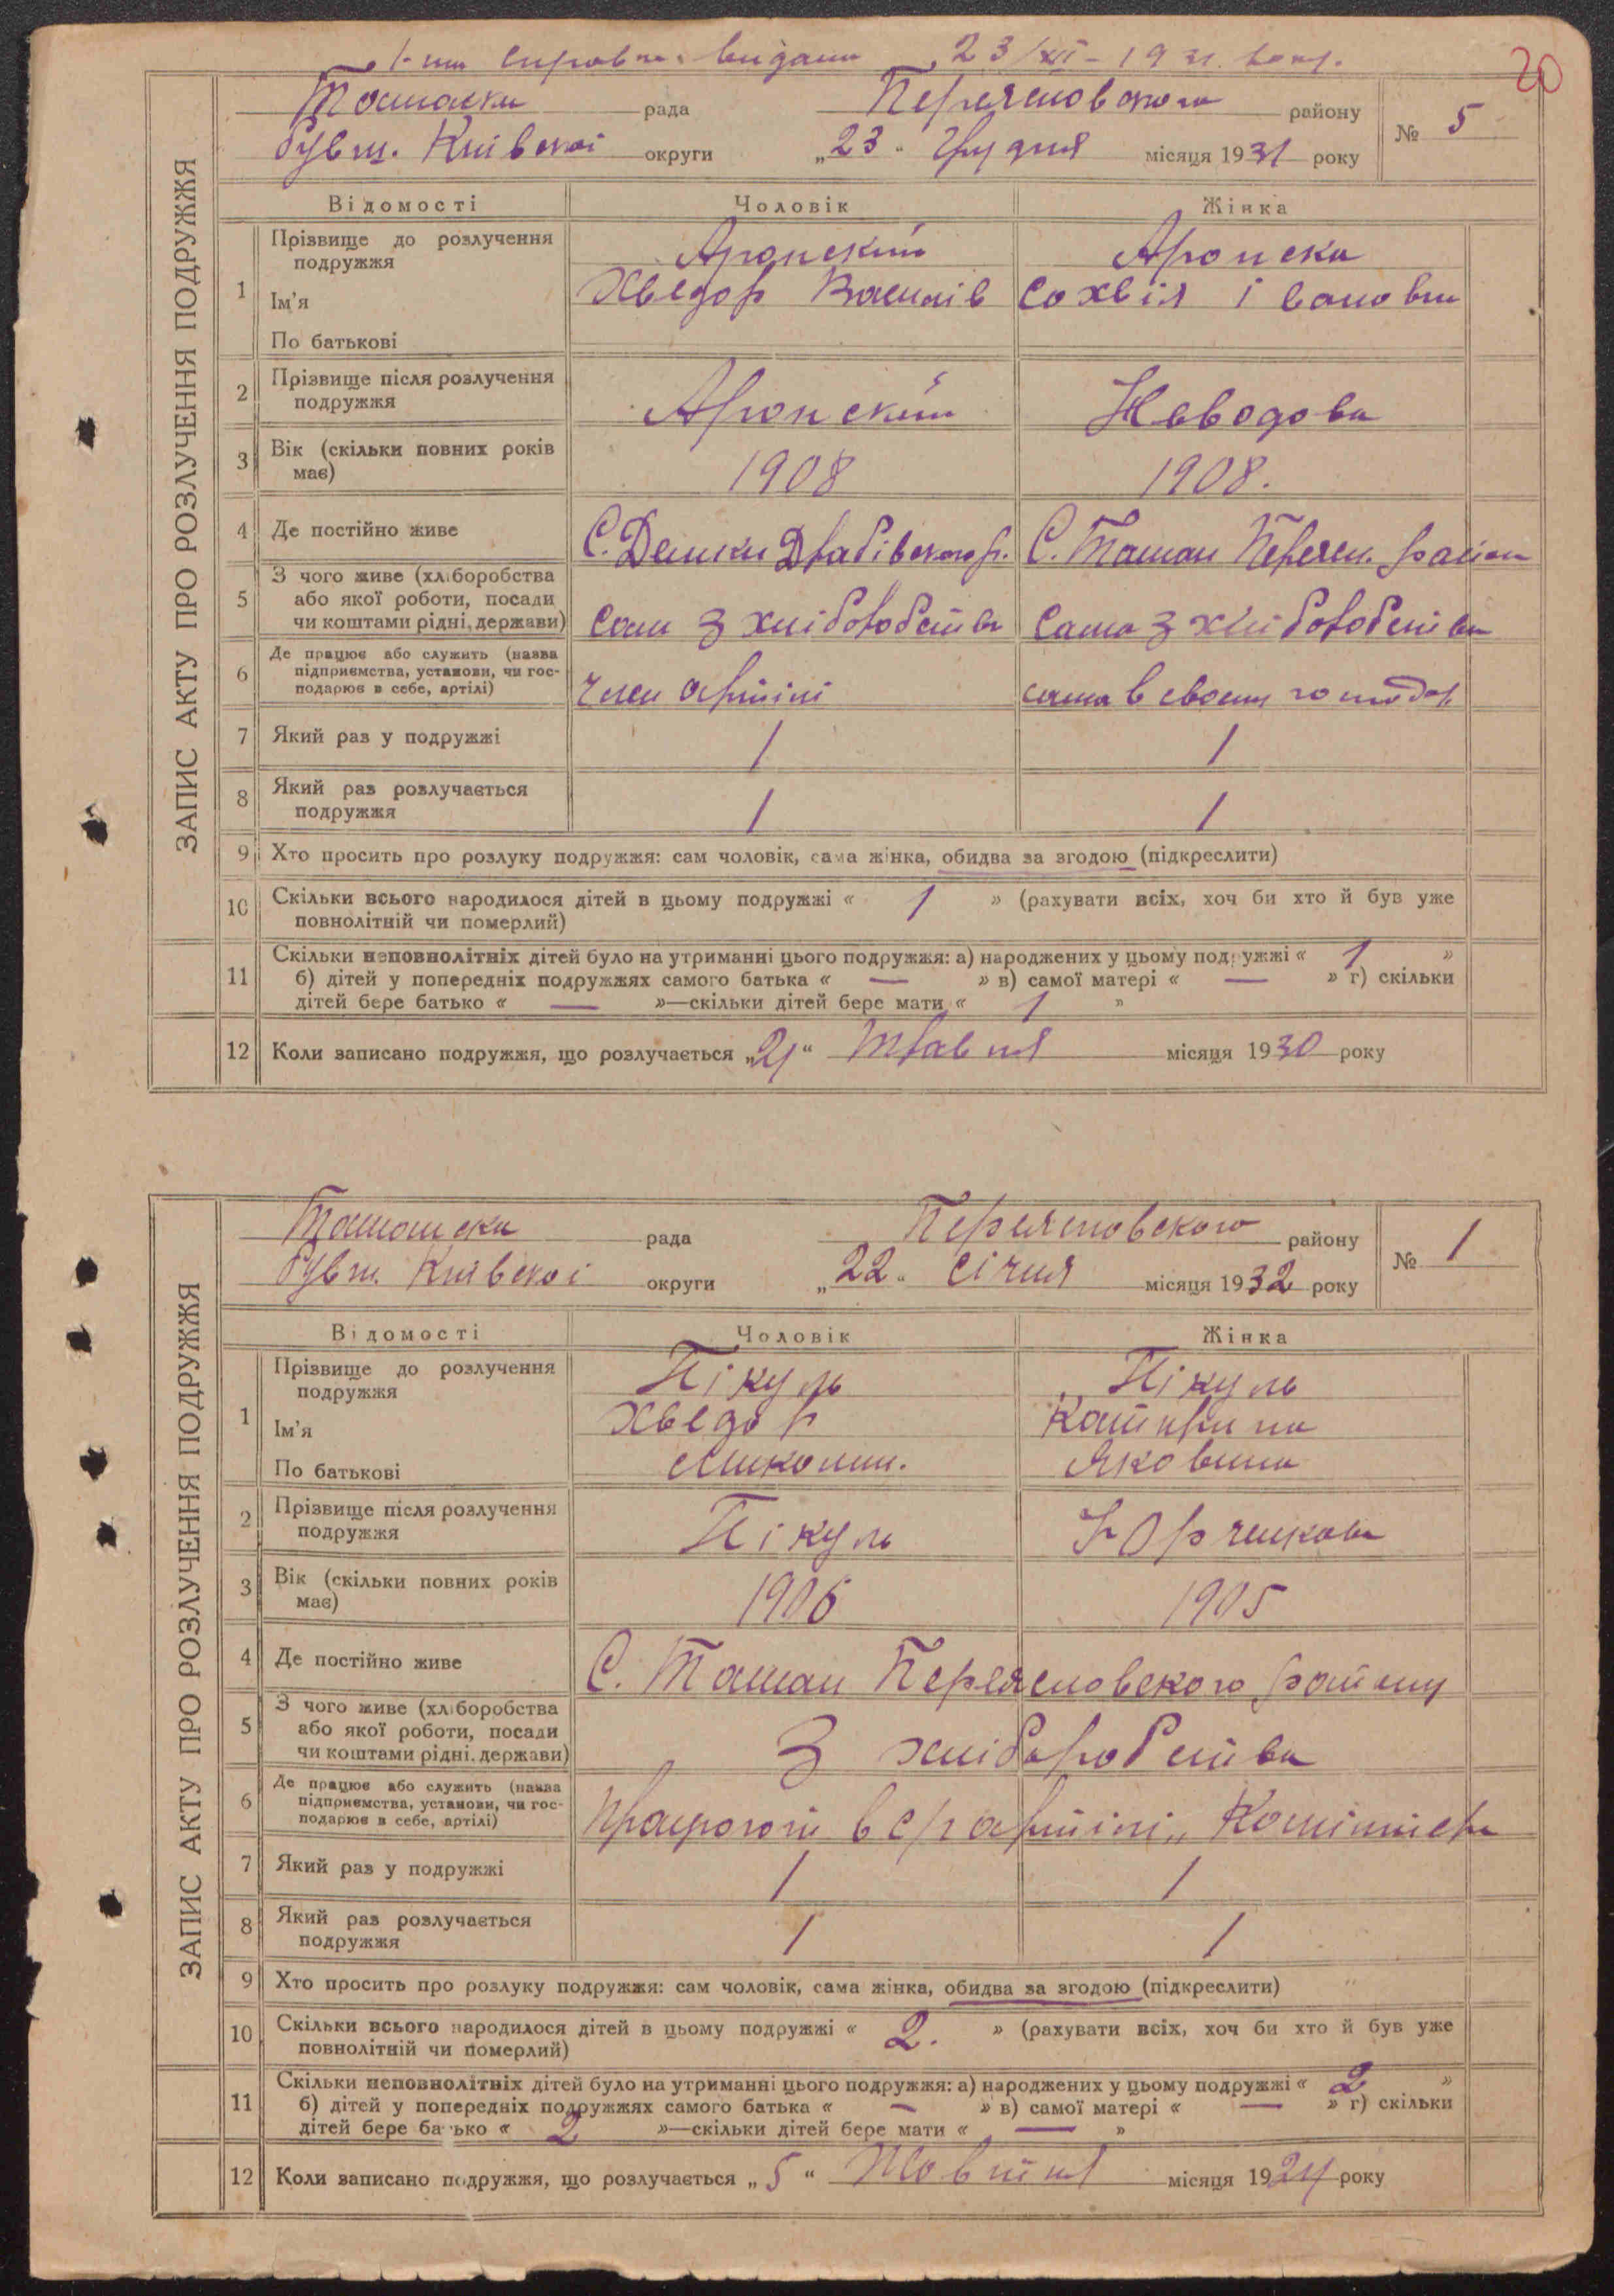 видани 23/XII-1931
20
рада Переяславського району
№ 5
Київської округи „23“ Грудня місяця 1931 року
ЗАПИС АКТУ ПРО РОЗЛУЧЕННЯ ПОДРУЖЖЯ
Відомості Чоловік Жінка
1 Прізвище до розлучення подружжя
Ім’я Хведор Василів Сохвія Івановна
По батькові
2 Прізвище після розлучення подружжя Неводова
3 Вік (скільки повних років має) 1908 1908.
4 Де постійно живе С. Демки Драбівского р. С. Ташан Переясл. район
5 З чого живе (хліборобства або якої роботи, посади чи коштами рідні, держави) сам з хліборобства сама з хліборобства
6 Де працює або служить (назва підприємства, установи, чи господарює в себе, артілі) член артілі сама в своему господар
7 Який раз у подружжі 1 1
8 Який раз розлучається подружжя 1 1
9 Хто просить про розлуку подружжя: сам чоловік, сама жінка, обидва за згодою (підкреслити)
10 Скільки всього народилося дітей в цьому подружжі « 1 » (рахувати всіх, хоч би хто й був уже
повнолітній чи померлий)
11 Скільки неповнолітніх дітей було на утриманні цього подружжя: а) народжених у цьому подружжі « 1 »
б) дітей у попередніх подружжях самого батька « — » в) самої матері « — » г) скільки
дітей бере батько « — »—скільки дітей бере мати « 1 »
12 Коли записано подружжя, що розлучається „21“ Травня місяця 1930 року
Ташанска рада Переяславского району
№ 1
Київскої округи „22“ січня місяця 1932 року
ЗАПИС АКТУ ПРО РОЗЛУЧЕННЯ ПОДРУЖЖЯ
Відомості Чоловік Жінка
1 Прізвище до розлучення подружжя Пікуль Пікуль
Ім’я Хведор Катирина
По батькові Миколаи. Яковина
2 Прізвище після розлучення подружжя Пікуль
3 Вік (скільки повних років має) 1906 1905
4 Де постійно живе С. Ташан Переясловского району
5 З чого живе (хліборобства або якої роботи, посади чи коштами рідні, держави) З хліборобства
6 Де працює або служить (назва підприємства, установи, чи господарює в себе, артілі) Працюют в с/г артілі „Комінтерн
7 Який раз у подружжі 1 1
8 Який раз розлучається подружжя 1 1
9 Хто просить про розлуку подружжя: сам чоловік, сама жінка, обидва за згодою (підкреслити)
10 Скільки всього народилося дітей в цьому подружжі « 2. » (рахувати всіх, хоч би хто й був уже
повнолітній чи померлий)
11 Скільки неповнолітніх дітей було на утриманні цього подружжя: а) народжених у цьому подружжі « 2 »
б) дітей у попередніх подружжях самого батька « — » в) самої матері « — » г) скільки
дітей бере батько « 2 »—скільки дітей бере мати « — »
12 Коли записано подружжя, що розлучається „5“ Жовтня місяця 1924 року